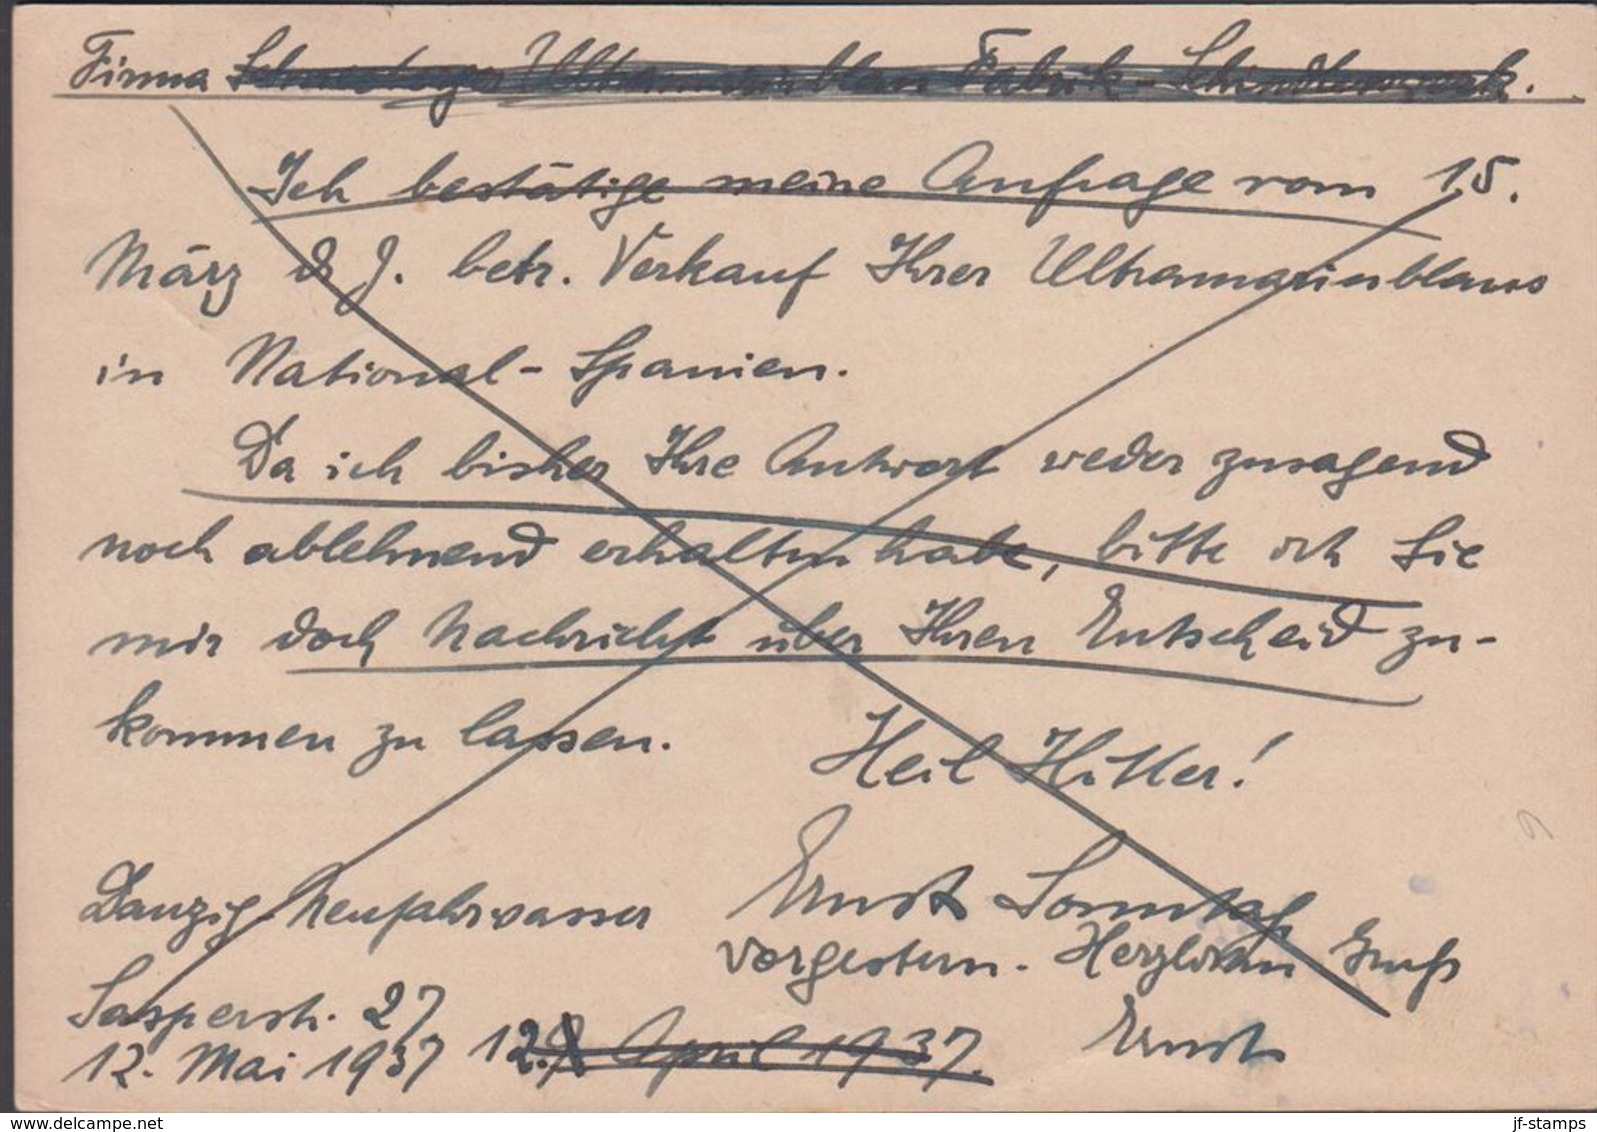 Firma Schneeberger Ultramarinblau Fabrik - Schindlerswerk.
Ich bestätige meine Anfrage vom 15.
März d. J. betr. Verkauf Ihrer Ultramarinblaus
in National-Spanien.
Da ich bisher Ihre Antwort weder zusagend
noch ablehnend erhalten habe, bitte ich Sie
mir doch Nachricht über Ihren Entscheid zu-
kommen zu lassen.
Heil Hitler!
Danzig-Neufahrwasser Ernst Sonntag
vorgestern. Herzlichen Gruß
Sasperstr. 27
12. Mai 1937 12. April 1937. Ernst
www.delcampe.net jf-stamps